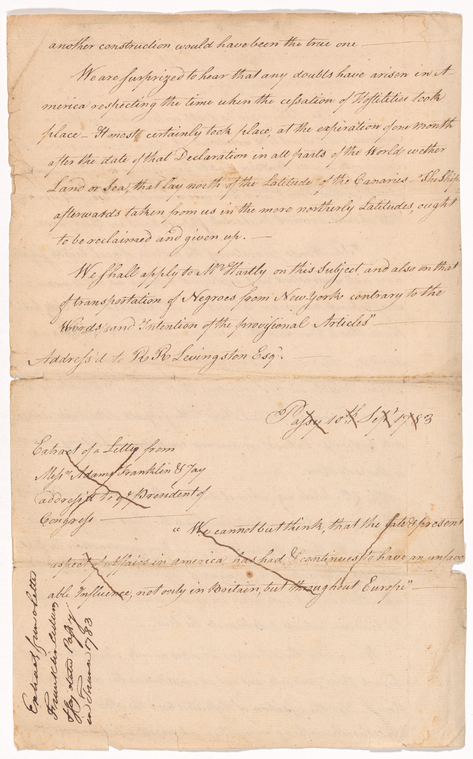 another construction would have been the true one —
We are surprized to hear that any doubts have arisen in A-
merica respecting the time when the cessation of Hostilities took
place — It most certainly took place, at the expiration of one month
after the date of that Declaration in all parts of the World wether
Land or Sea, that lay north of the Latitude of the Canaries — The Ships
afterwards taken from us in the more northerly Latitudes, ought
to be reclaimed and given up. —
We shall apply to Mr. Hartly on this Subject and also on that
of transportation of Negroes from New York contrary to the
Words and Intention of the provisional Articles"
Address'd to R R Livingston Esqr.
Passy 10th Sepr 1783
Extract of a Letter from
Messrs Adams Franklin & Jay
address'd to ye President of
Congress
" We cannot but think, that the late & present
aspect of affairs in america has had & continues to have an unfavor
able Influence, not only in Britain, but throughout Europe" —
Extract from a letter
Franklin
Jay dated Passy
in France 1783